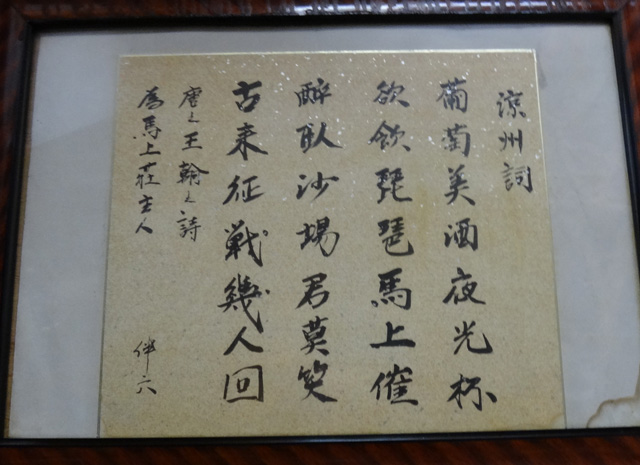 涼州詞
葡萄美酒夜光杯
欲飲琵琶馬上催
醉臥沙場君莫笑
古来征戦幾人回
唐之王翰之詩
為馬上荘主人
伴六